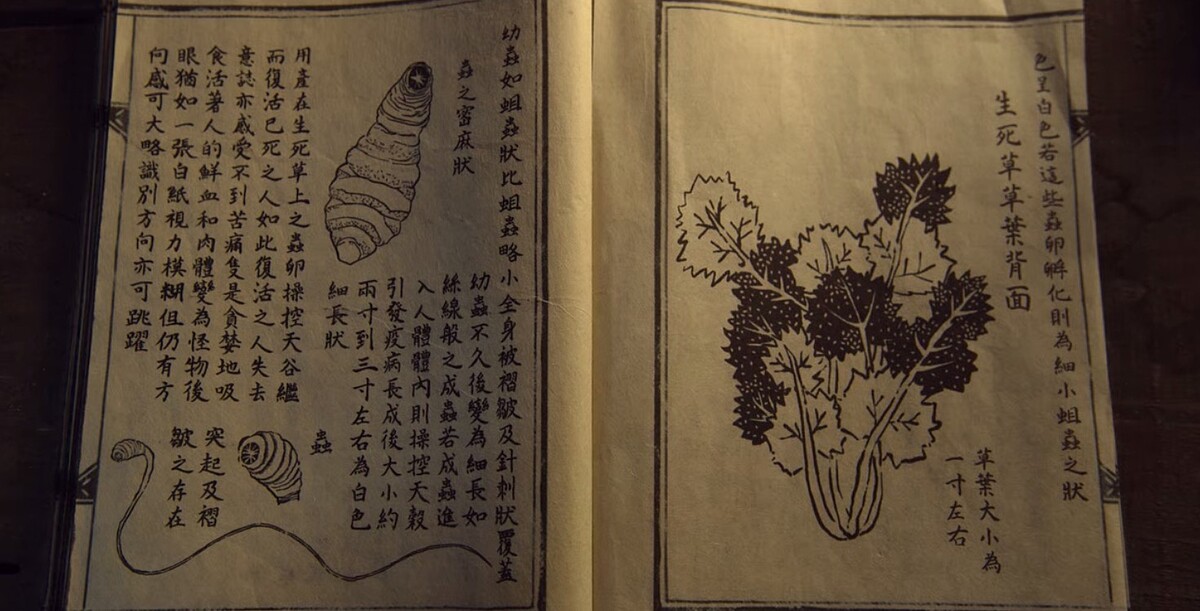 色呈白色若這些蟲卵孵化則為細小蛆蟲之狀
生死草草葉背面
草葉大小為
一寸左右
幼蟲如蛆蟲狀比蛆蟲略小全身被褶皺及針刺狀覆蓋
蟲之審麻狀
幼蟲不久後變為細長如
絲線般之成蟲若成蟲進
入人體體內則操控天穀
引發疫病長成後大小約
兩寸到三寸左右為白色
細長狀
用產在生死草上之蟲卵操控天谷繼
而復活已死之人如此復活之人失去
意誌亦感受不到苦痛隻是貪婪地吸
食活著人的鮮血和肉體變為怪物後
眼猶如一張白紙視力模糊但仍有方
向感可大略識別方向亦可跳躍
蟲
突起及褶
皺之存在